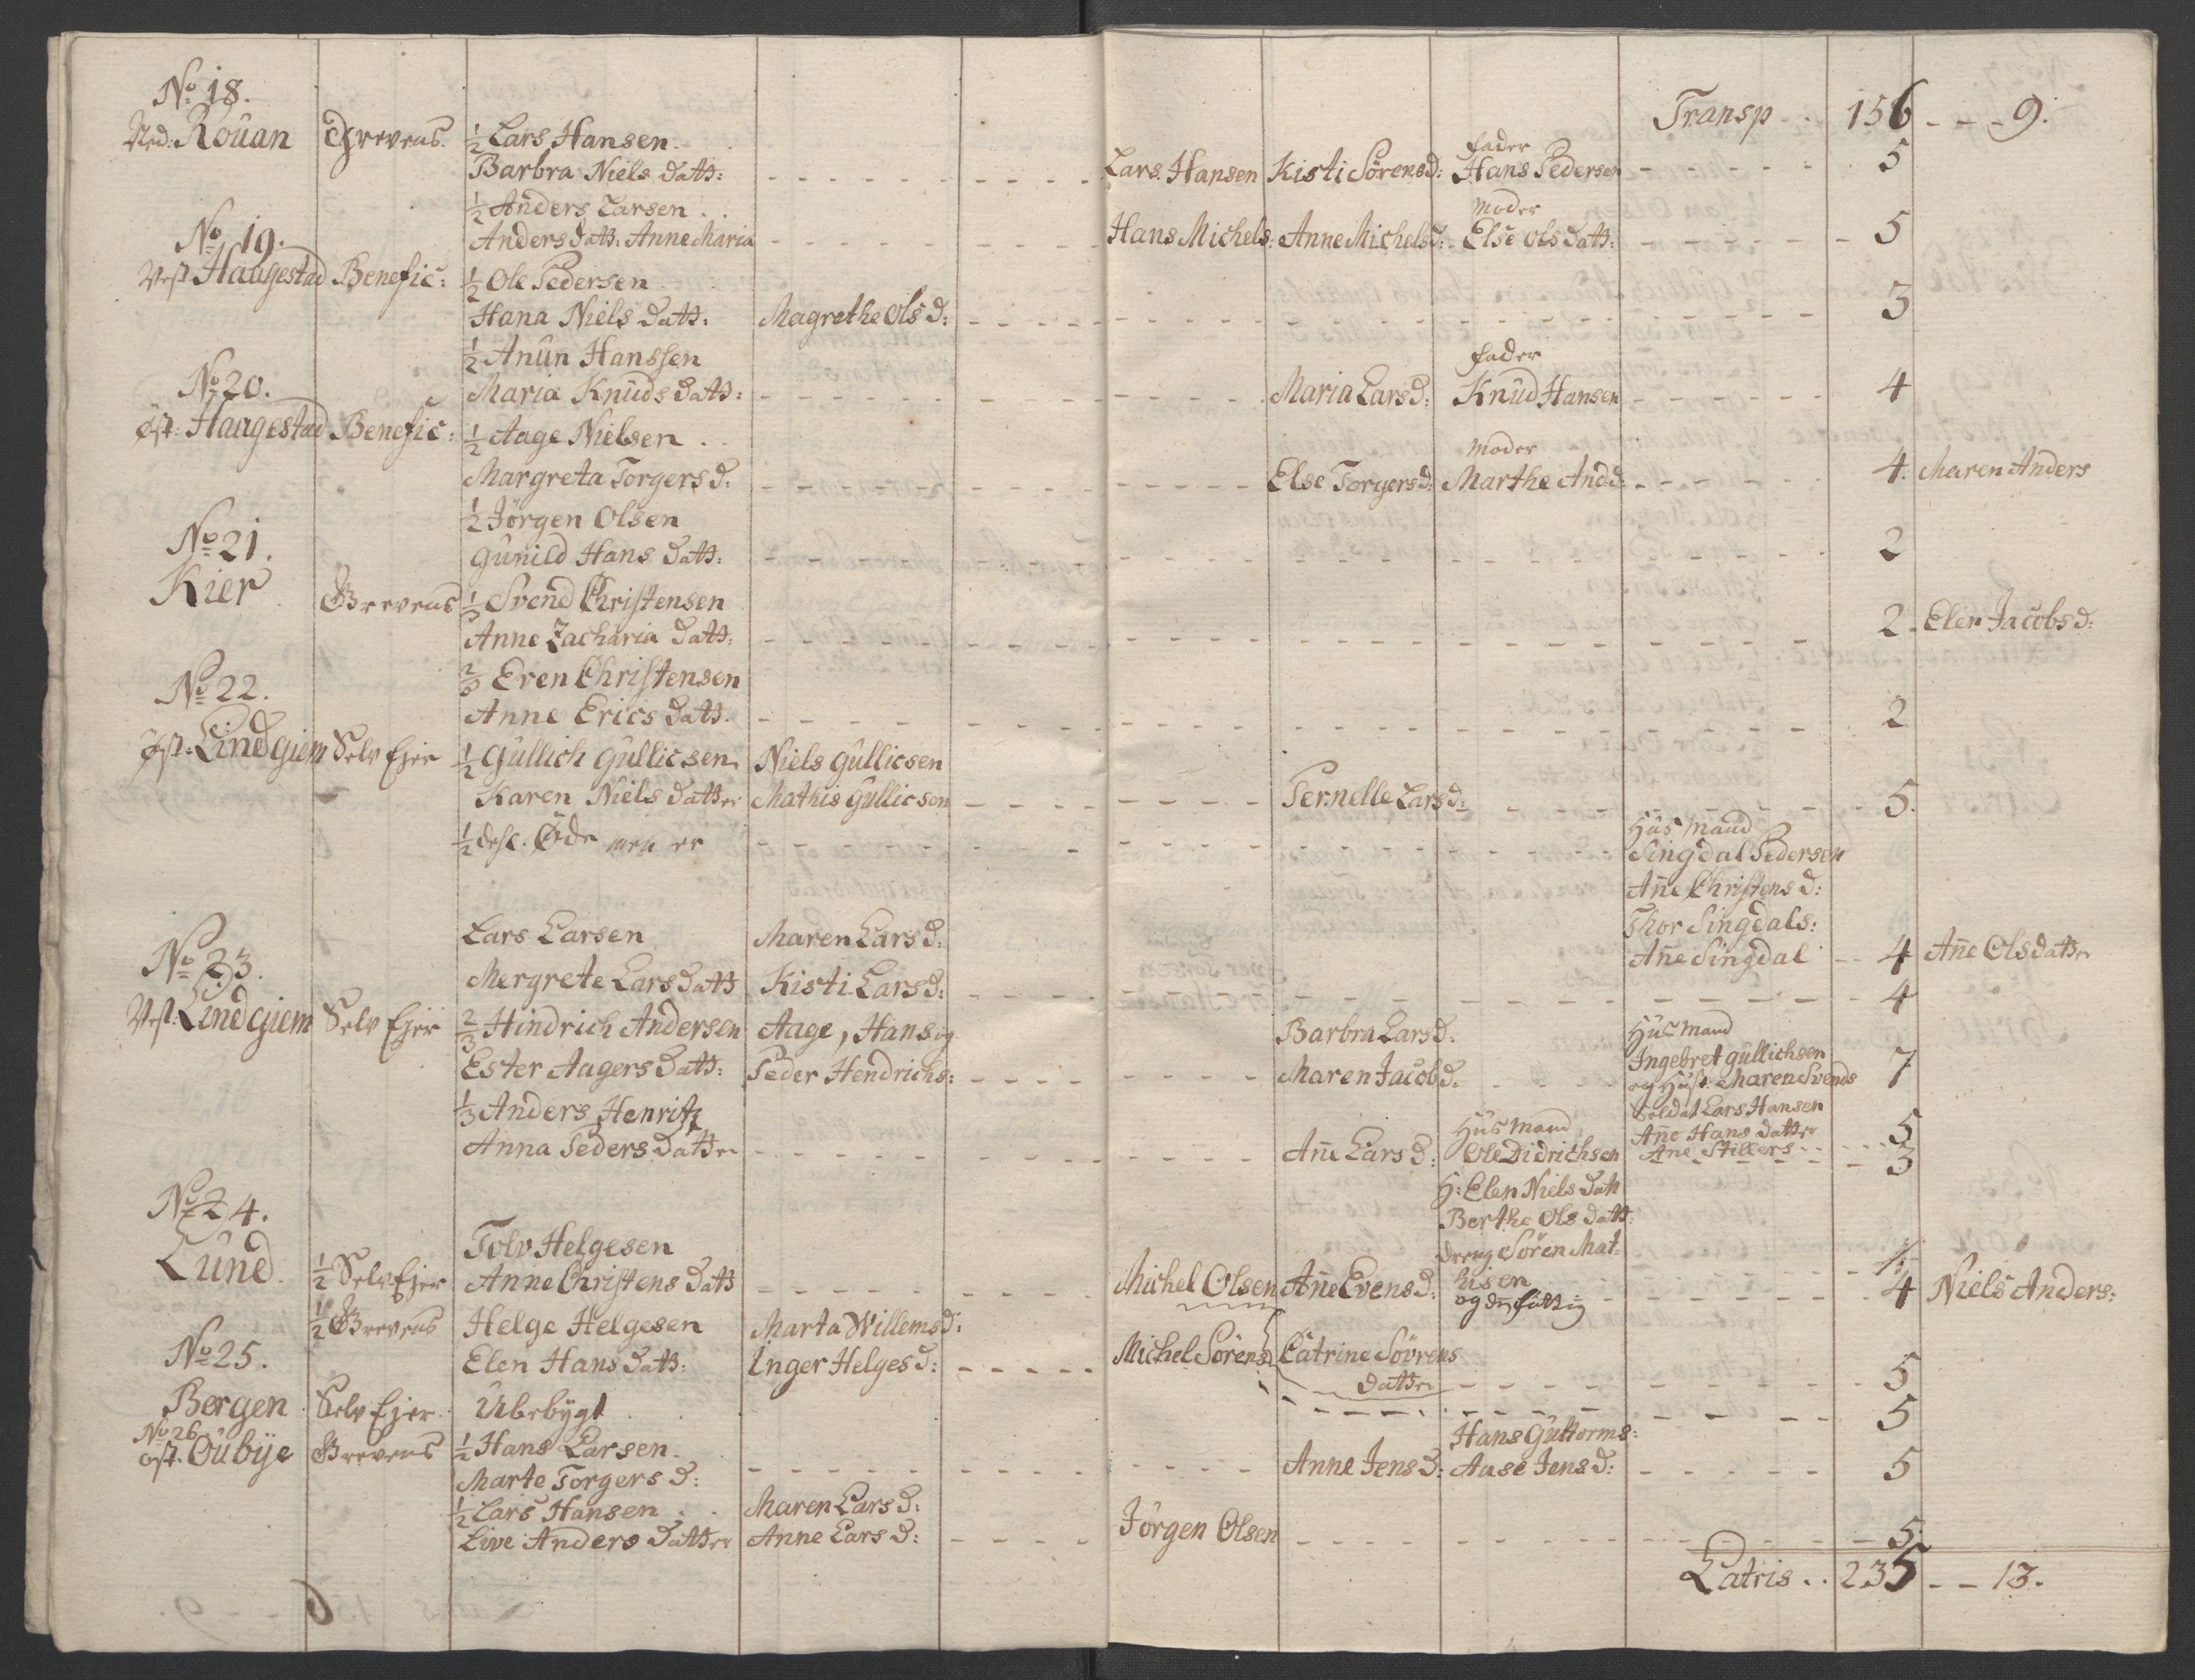 Transp . . 156 - - - 9.
No 18.
Ned: Rouan Grevens ½ Lars Hansen
Barbra Niels datt: Lars Hansen Kisti Sörensd: Fader Hans Pedersen 5
½ Anders Larsen . .
Anders datt: Anne Maria Hans Michels: Anne Michelsd: Moder Else Ols datt: 5
No 19.
Vest Haugestad Benefic: ½ Ole Pedersen
Hana Niels datt. Magrethe Ols d: 3
½ Anun Hanssen
Maria Knuds datt: Maria Lars d: Fader Knud Hansen 4
No 20.
öst: Haugestad Benefic: ½ Aage Nielsen . .
Margreta Torgers d: Else Torgersd: Moder Marthe And d: 4. Maren Anders
½ Jörgen Olsen
Gunild Hans datt: 2
No 21.
Kier Grevens ⅓ Svend Christensen
Anne Zacharia datt: 2. Elen Jacobs d:
⅔ Even Christensen
Anne Erics datt. 2
No 22.
öst: Lindgiem Selv Ejer ½ Gullich Gullicsen Niels Gullicsen
Karen Niels datter Mathis Gullicsen Pernelle Lars d: 5.
½ desl. Öde men er Hus Mand
Singdal Pedersen
Añe Christens d:
Thor Singdals:
Añe Singdal 4 Añe Olsdatter
No 23.
Lars Larsen Maren Lars d:
Mergrete Lars datt Kisti Lars d: 4
Vest: Lindgiem Selv Ejer ⅔ Hindrich Andersen Aage, Hans og Barbra Lars d: Hus Mand
Ester Aagers datt: Peder Hendrichs: Maren Jacob d: Ingebret Gullichsen 7
og Hust: Maren Svends
⅓ Anders Henritz Soldat Lars Hansen
Añe Hans datter 5
Anna Peders datter Añe Lars d: Hus Mand Ole Didrichsen Ane Stillers 3
H: Elen Niels datt
Berthe Ols datt:
dreng Sören Mat-
hisen
og dy fattig
No 24.
Lund ½ Selv Ejer Tolv Helgesen
Anne Christens datt Michel Olsen Añe Evens d: 4 Niels Anders:
½ Grevens Helge Helgesen Marta Willems d:
Elen Hans datt: Inger Helges d: Michel Sörens Catrine Sövrens
datter 5
No 25.
Bergen Selv Ejer Ubebygt 5
No 26
öst. Oubije Grevens ½ Hans Larsen Hans Guttorms:
Marte Torgers d: Anne Jens d: Aase Jens d: 5
½ Lars Hansen . . Maren Lars d:
Live Anders datter Anne Lars d: Jörgen Olsen 5
Latris . . 235 - - 13.